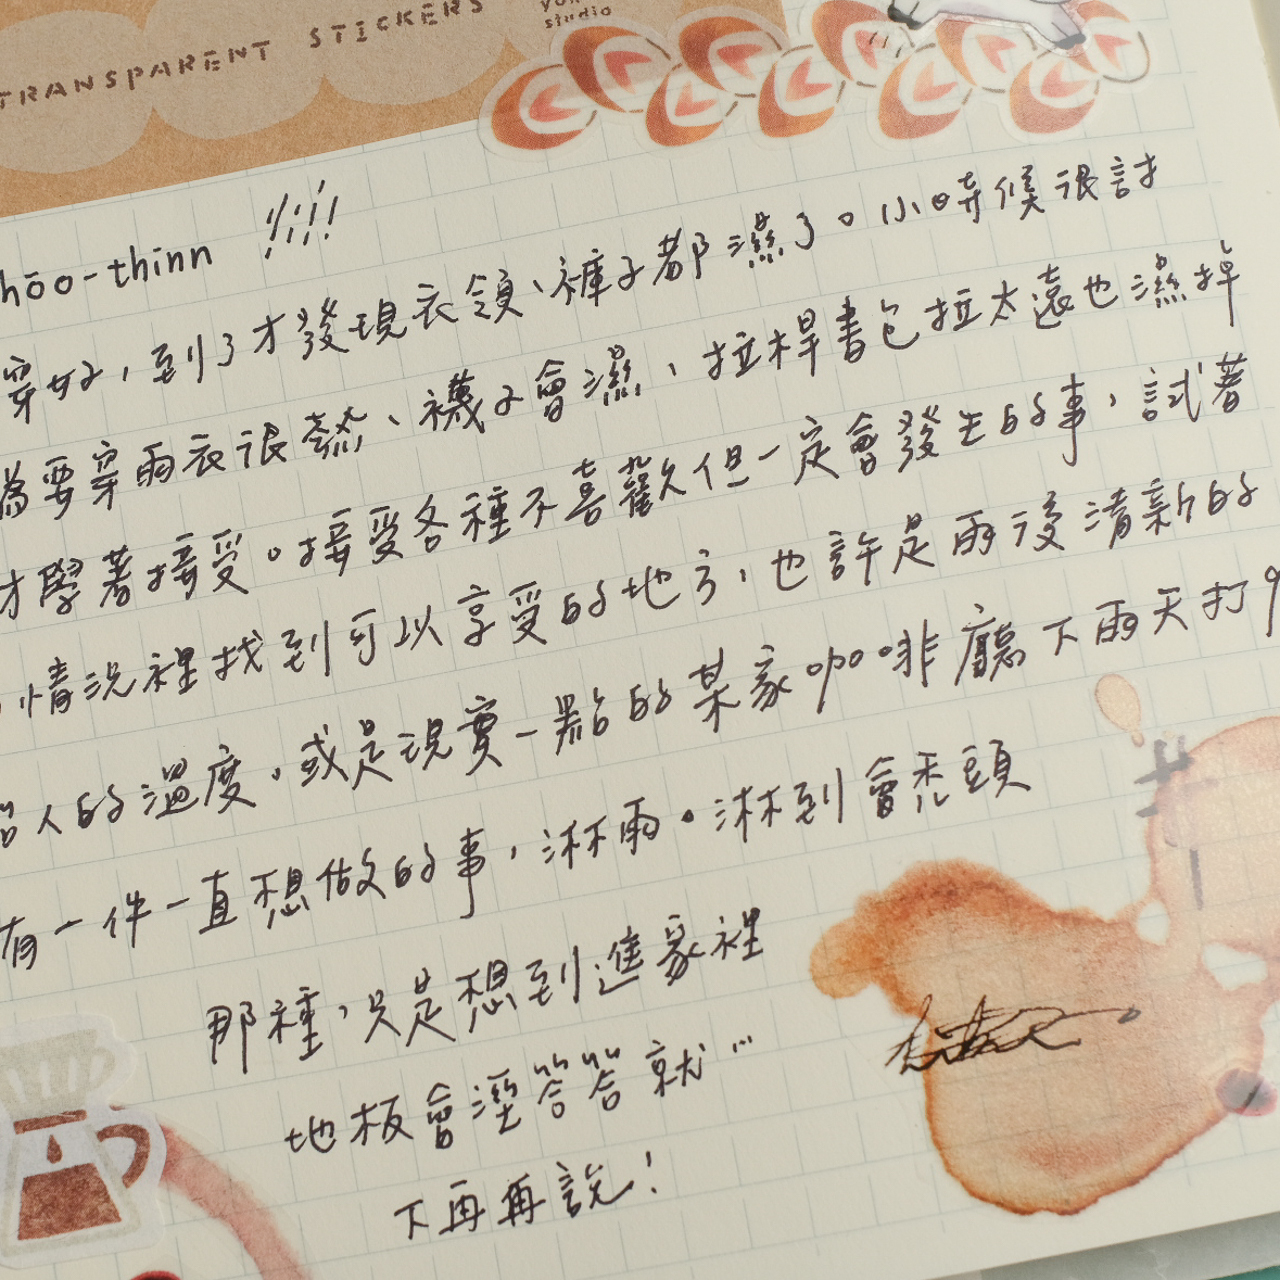 TRANSPARENT STICKERS
studio
hōo-thinn !!!!
穿好，到了才發現衣領、褲子都濕了。小時候很討
為要穿雨衣很熱、襪子會濕、拉桿書包拉太遠也濕掉
才學著接受。接受各種不喜歡但一定會發生的事，試著
情況裡找到可以享受的地方，也許是雨後清新的
人的溫度，或是現實一點的某家咖啡廳下雨天打9
有一件一直想做的事，淋雨。淋到會禿頭
那種，只是想到進家裡
地板會溼答答就…
下再再說！